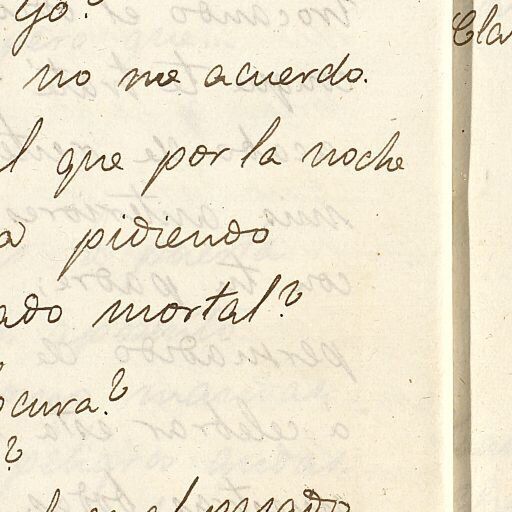 yo?
no me acuerdo.
l que por la noche
a pidiendo
ado mortal?
ocura?
?
el
Cla